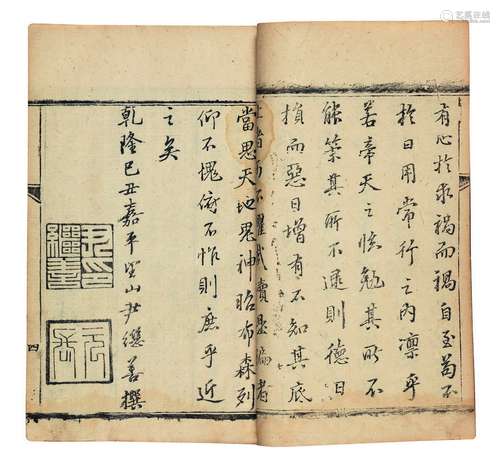 有心於求福而福自至苟不
於日用常行之內凛乎
若帝天之臨勉其所不
能築其所不逮則德日
損而惡日增有不知其底
者
當思天地鬼神昭布森列
仰不愧俯不怍則庶乎近
之矣
乾隆巳丑嘉平望山尹繼善撰
尹印
繼善
四